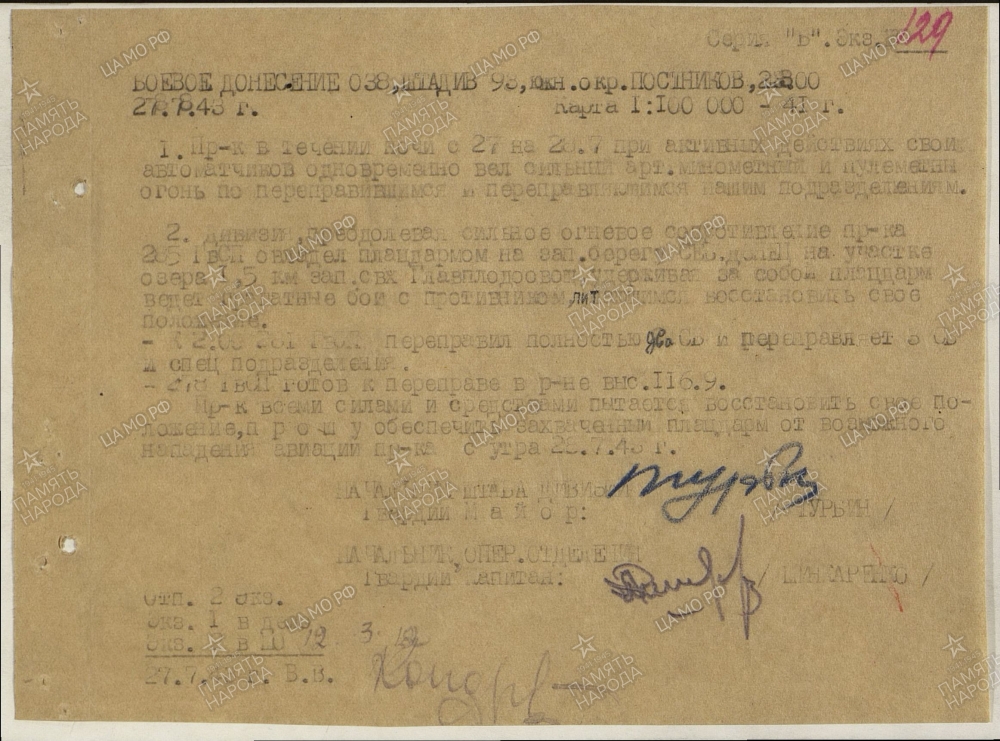 Серия "Б". Экз.
129
БОЕВОЕ ДОНЕСЕНИЕ 038, ШТАДИВ 93, южн.окр. ПОСТНИКОВ,
27.7.43 г. Карта 1:100 000 - 41 г.
1. Пр-к в течении ночи с 27 на 28.7 при активных действиях свои
автоматчиков одновременно вел сильный арт.минометный и пулеметны
огонь по переправившимся и переправляющимся нашим подразделениям.
2. Дивизи преодолевая сильное огневое сопротивление пр-ка
285 ГвСП овладел плацдармом на зап.берегу СЕВ.ДОНЕЦ на участке
озера 1,5 км зап.свх Главплодоовощ удерживая за собой плацдарм
ведет бои с противником, пытающимся восстановить свое
положение.
- К 2.00 281 ГвСП переправил полностью два СБ и переправляет 3 СБ
и спец подразделения.
- 278 ГвСП готов к переправе в р-не выс.116.9.
Пр-к всеми силами и средствами пытается восстановить свое по-
ложение, п р о ш у обеспечить захваченный плацдарм от возможного
нападения авиации пр-ка с утра 28.7.43 г.
НАЧАЛЬНИК ШТАБА ДИВИЗИИ
Гвардии М а й о р: /ТУРБИН /
НАЧАЛЬНИК ОПЕР.ОТДЕЛЕНИЯ
Гвардии Капитан: / ШИНКАРЕНКО /
Отп. 2 экз.
Экз. 1 в дело
Экз. 2 в
27.7.43 г. В.В.